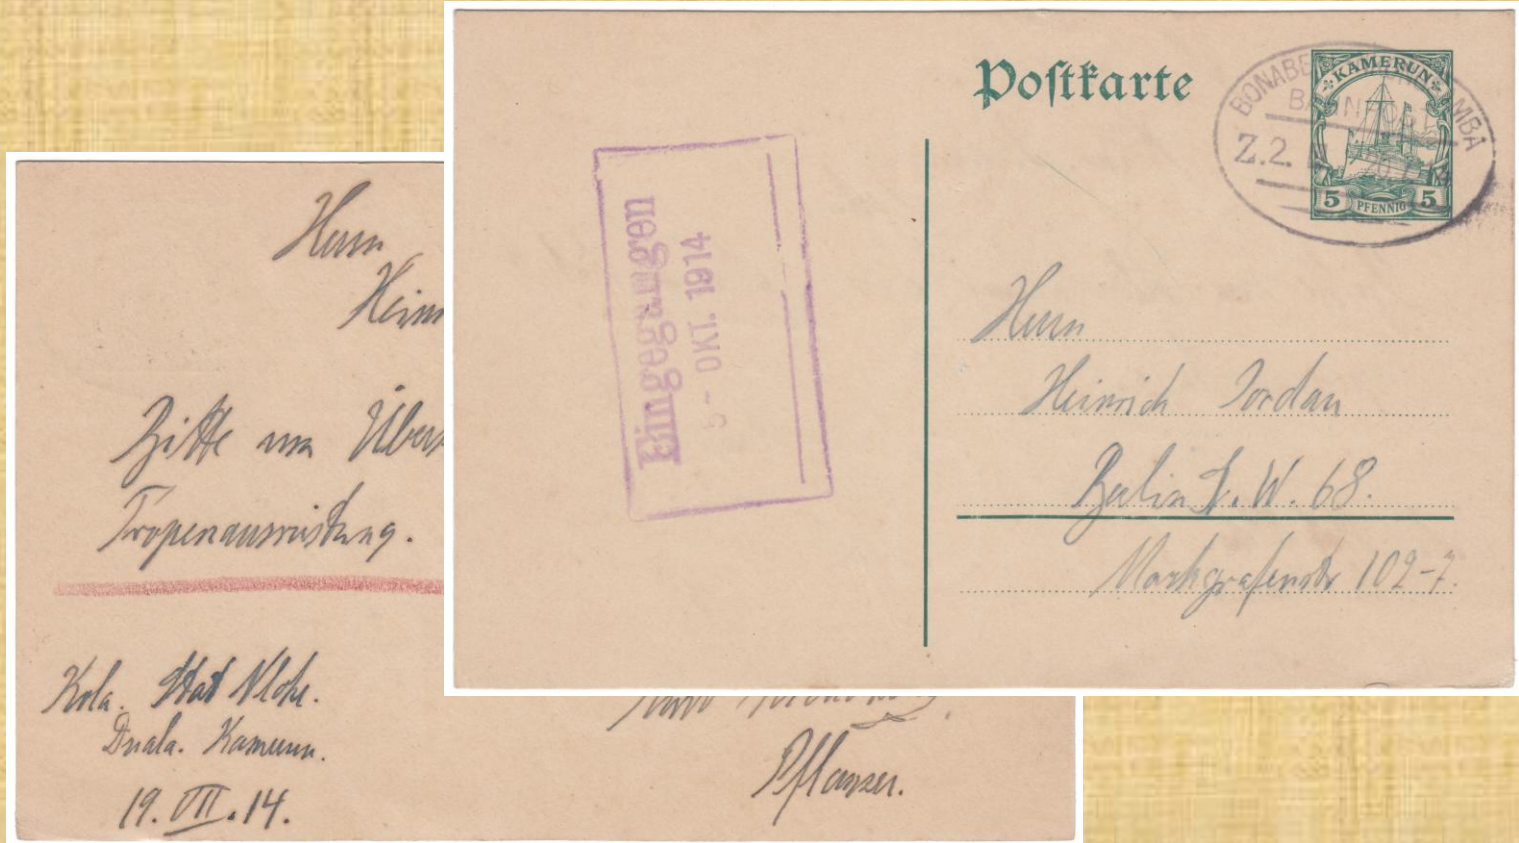 Postkarte
KAMERUN
5 PFENNIG 5
Z.2.
Eingegangen
5 - OKT. 1914
Herrn
Heinrich Jordan
Berlin S.W. 68.
Markgrafenstr 102-7.
Herrn
Bitte um
Tropenausrüstung.
Kola.
Duala. Kamerun.
19. VII. 14.
Pflanzer.